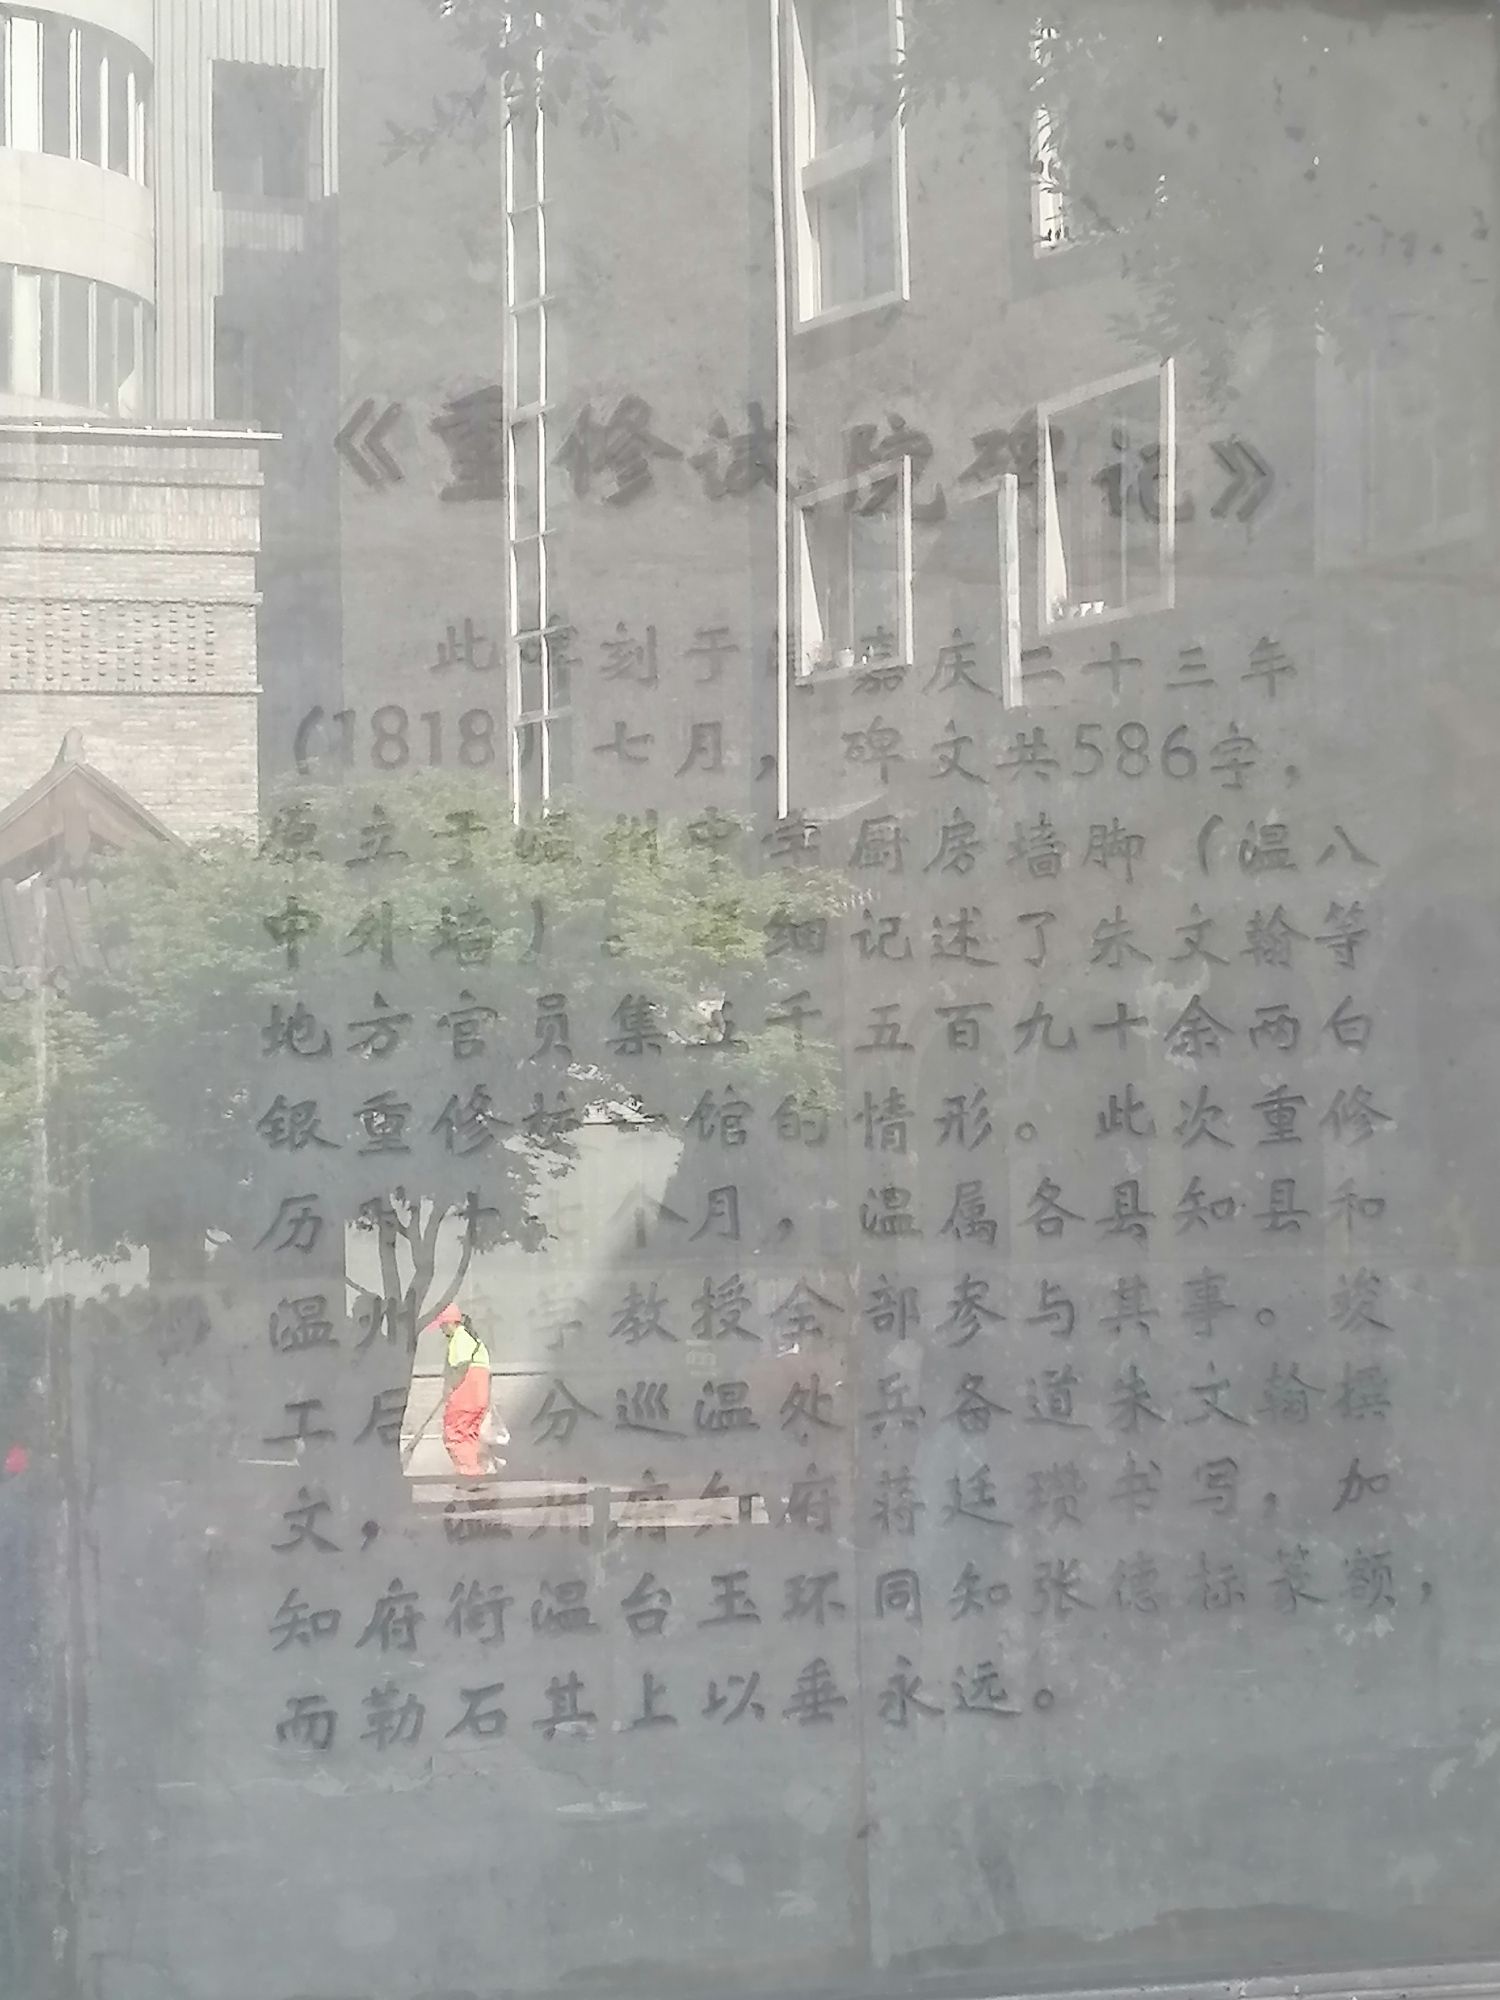 《重修试院碑记》
此碑刻于 嘉庆二十三年
(1818)七月，碑文共586字，
原立于温州中学厨房墙脚(温八
中外墙)。 细记述了朱文翰等
地方官员集五千五百九十余两白
银重修 馆的情形。此次重修
历时十七个月，温属各县知县和
温州 学教授全部参与其事。竣
工后 分巡温处兵备道朱文翰撰
文，温州府知府蒋廷瓒书写，加
知府衔温台玉环同知张德标篆额，
而勒石其上以垂永远。